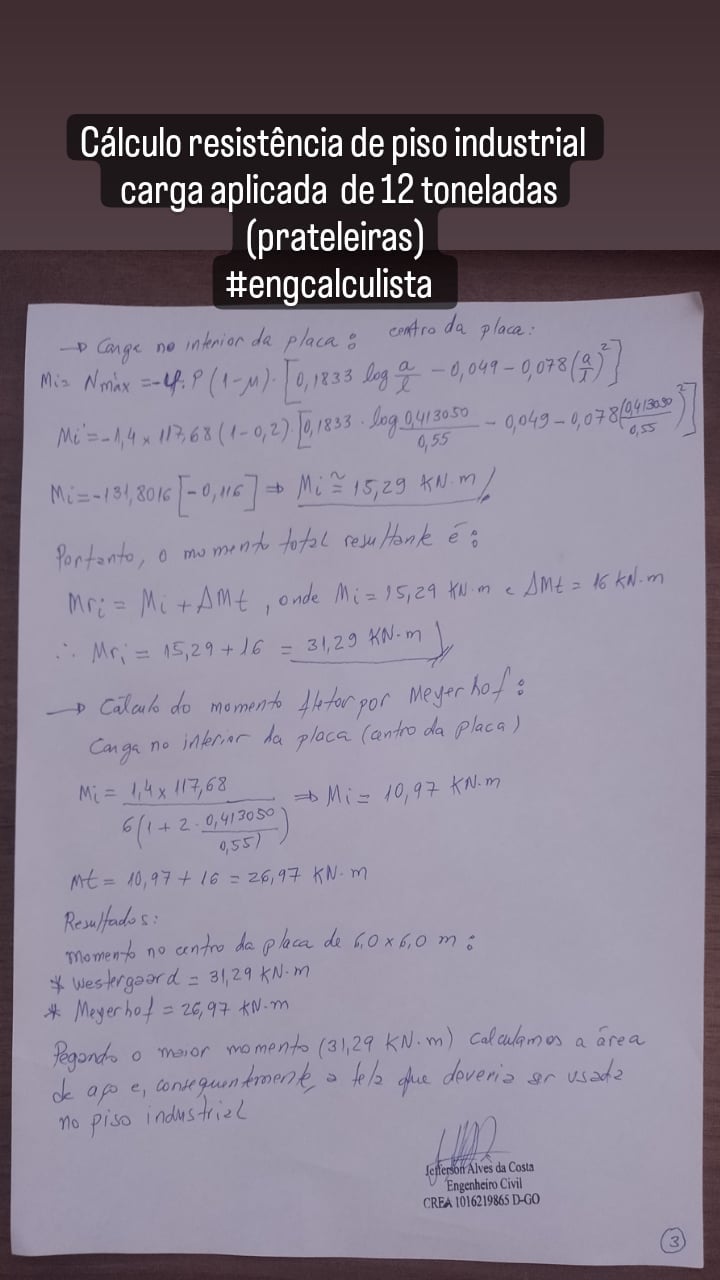 Cálculo resistência de piso industrial
carga aplicada de 12 toneladas
(prateleiras)
#engcalculista
→ Carga no interior da placa: centro da placa:
Mi= Nmáx = -φ. P (1-μ). [0,1833 log a/l - 0,049 - 0,078 (a/l)²]
Mi = -1,4 x 117,68 (1-0,2). [0,1833 . log 0,413050/0,55 - 0,049 - 0,078 (0,413050/0,55)²]
Mi = -131,8016 [-0,116] ⇒ Mi ≅ 15,29 KN.m
Portanto, o momento total resultante é:
Mri = Mi + ΔMt, onde Mi = 15,29 KN.m e ΔMt = 16 KN.m
∴ Mri = 15,29 + 16 = 31,29 KN.m
→ Cálculo do momento fletor por Meyerhof:
Carga no interior da placa (centro da placa)
Mi = 1,4 x 117,68 / 6(1 + 2 . 0,413050/0,55) ⇒ Mi = 10,97 KN.m
Mt = 10,97 + 16 = 26,97 KN.m
Resultados:
momento no centro da placa de 6,0 x 6,0 m:
* Westergaard = 31,29 KN.m
* Meyerhof = 26,97 KN.m
Pegando o maior momento (31,29 KN.m) calculamos a área
de aço e, consequentemente, a tela que deveria ser usada
no piso industrial
Jefferson Alves da Costa
Engenheiro Civil
CREA 1016219865 D-GO
3